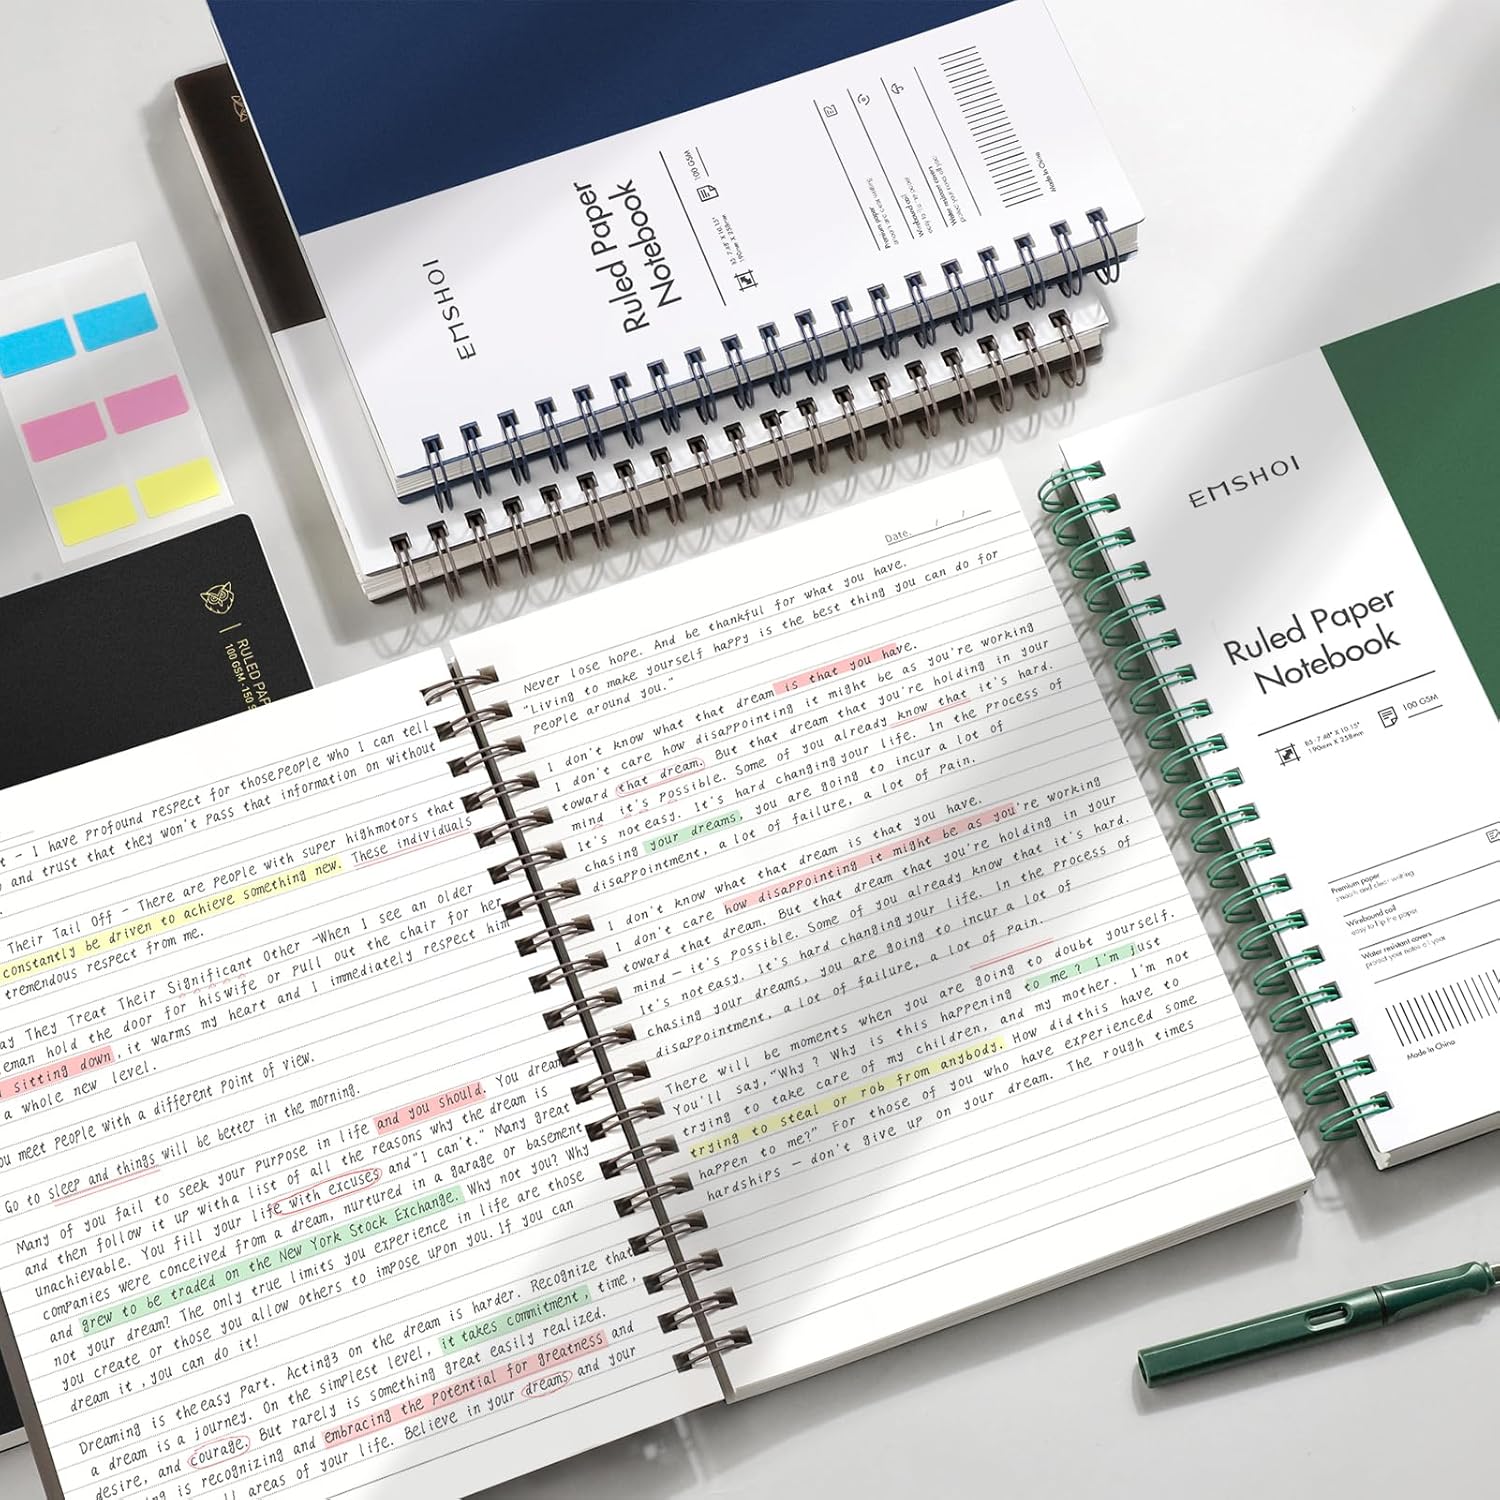 EMSHOI
Ruled Paper
Notebook
B5: 7.48" X 10.15"
190mm X 258mm
100 GSM
Premium paper
smooth and clear writing
Wirebound coil
easy to flip the paper
Water resistant covers
protect your notes all year
Made in China
RULED PAP
100 GSM · 150 S
EMSHOI
Ruled Paper
Notebook
B5: 7.48" X 10.15"
190mm X 258mm
100 GSM
Premium paper
smooth and clear writing
Wirebound coil
easy to flip the paper
Water resistant covers
protect your notes all year
Made in China
t - I have profound respect for those people who I can tell
and trust that they won't pass that information on without
Their Tail Off - There are people with super highmotors that
constantly be driven to achieve something new. These individuals
tremendous respect from me.
ay They Treat Their Significant Other -When I see an older
eman hold the door for his wife or pull out the chair for her
sitting down, it warms my heart and I immediately respect him
a whole new level.
ou meet people with a different point of view.
Go to sleep and things will be better in the morning.
Many of you fail to seek your purpose in life and you should. You dream
and then follow it up with a list of all the reasons why the dream is
unachievable. You fill your life with excuses and "I can't." Many great
companies were conceived from a dream, nurtured in a garage or basement
and grew to be traded on the New York Stock Exchange. Why not you? Why
not your dream? The only true limits you experience in life are those
you create or those you allow others to impose upon you. If you can
dream it , you can do it!
Dreaming is the easy part. Acting3 on the dream is harder. Recognize that
a dream is a journey. On the simplest level, it takes commitment, time,
desire, and courage. But rarely is something great easily realized.
ing is recognizing and embracing the potential for greatness and
ll areas of your life. Believe in your dreams and your
Date. / /
Never lose hope. And be thankful for what you have.
"Living to make yourself happy is the best thing you can do for
people around you."
I don't know what that dream is that you have.
I don't care how disappointing it might be as you're working
toward that dream. But that dream that you're holding in your
mind it's possible. Some of you already know that it's hard.
It's not easy. It's hard changing your life. In the process of
chasing your dreams, you are going to incur a lot of
disappointment, a lot of failure, a lot of pain.
I don't know what that dream is that you have.
I don't care how disappointing it might be as you're working
toward that dream. But that dream that you're holding in your
mind — it's possible. Some of you already know that it's hard.
It's not easy. It's hard changing your life. In the process of
chasing your dreams, you are going to incur a lot of
disappointment, a lot of failure, a lot of pain.
There will be moments when you are going to doubt yourself.
You'll say, "Why ? Why is this happening to me ? I'm just
trying to take care of my children, and my mother. I'm not
trying to steal or rob from anybody. How did this have to
happen to me?" For those of you who have experienced some
hardships — don't give up on your dream. The rough times